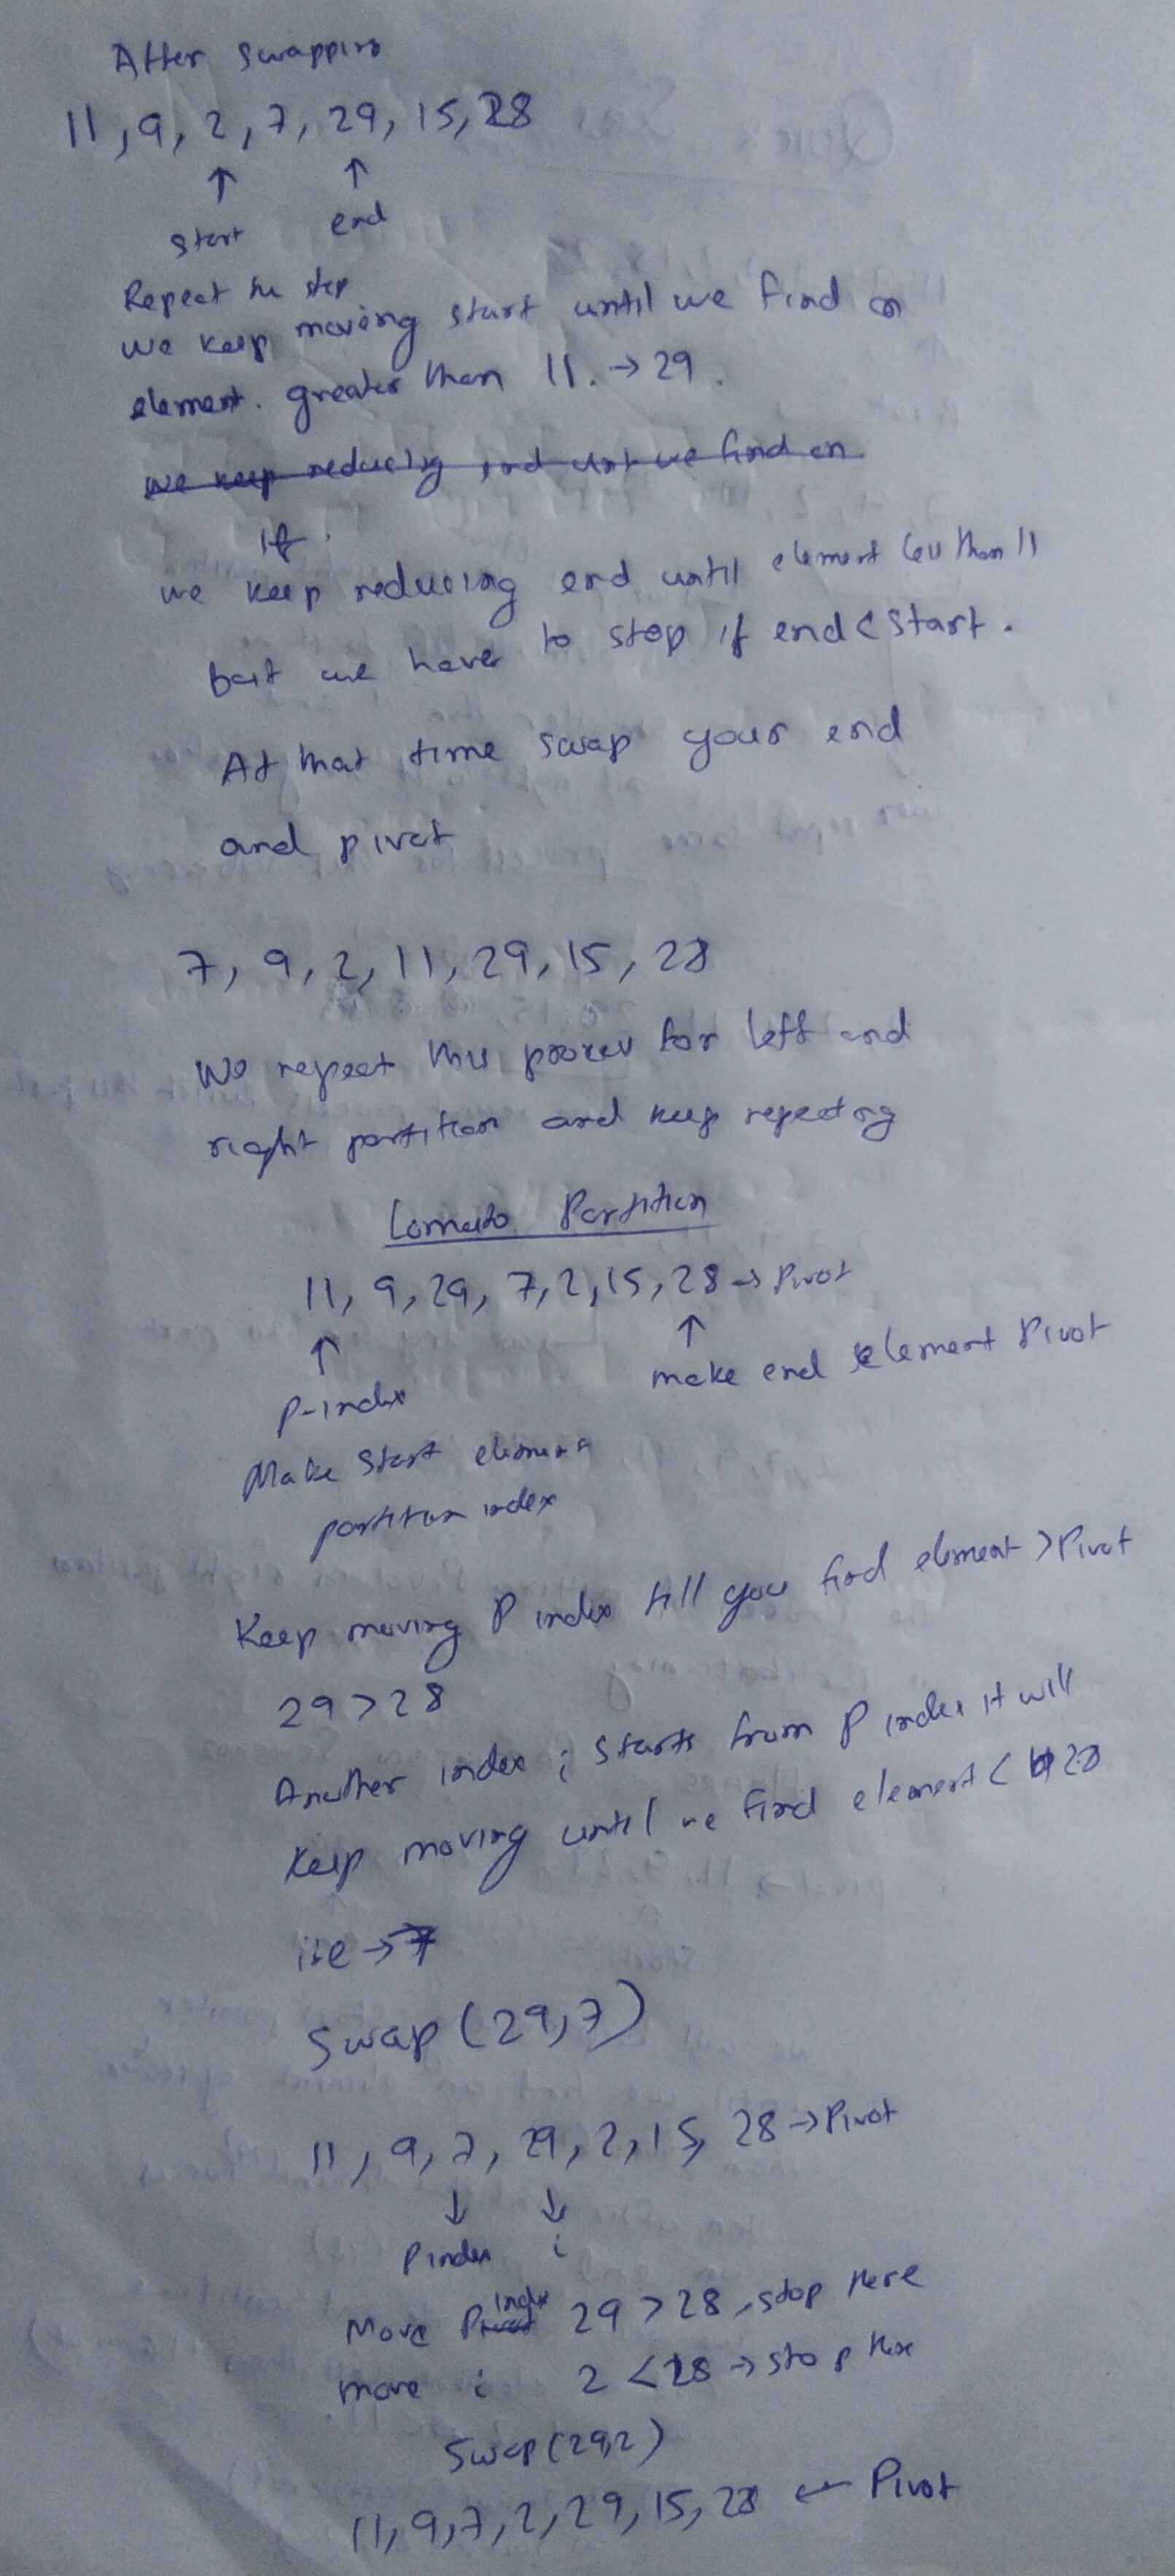 After swapping
11, 9, 2, 7, 29, 15, 28
↑ ↑
start end
Repeat the step
we keep moving start until we find an
element. greater than 11. → 29.
we keep reducing end unt we find an
If.
we keep reducing end until element less than 11
but we have to stop if end < start.
At that time swap your end
and pivot
7, 9, 2, 11, 29, 15, 28
We repeat this process for left and
right partition and keep repeating
Lomuto Partition
11, 9, 29, 7, 2, 15, 28 → Pivot
↑ ↑
P-index make end element Pivot
Make start element
partition index
Keep moving P index till you find element > Pivot
29 > 28
Another index i starts from P index it will
Keep moving until we find element < 28
i.e → 7
Swap (29, 7)
11, 9, 7, 29, 2, 15, 28 → Pivot
↓ ↓
Pindex i
Move Pindex 29 > 28, stop here
move i 2 < 28 → stop here
Swap (29,2)
11, 9, 7, 2, 29, 15, 28 ← Pivot